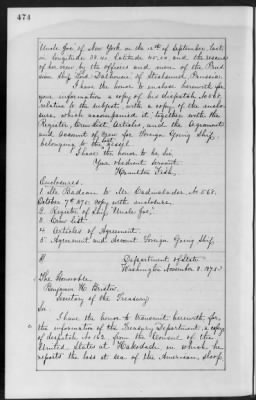 474
Uncle Joe of New York on the 12th of September last
in longitude 38.41, Latitude 45.24 and the rescue
of her crew by the officers and men of the Prus-
sian ship Lord Dalhousie of Stralsund, Prussia.
I have the honor to enclose herewith for
your information a copy of his despatch No 568.
relative to the subject, with a copy of the enclo-
sure which accompanied it, together with the
Register, Crew List, Articles, and the Agreement
and account of crew for Foreign Going Ship,
belonging to the lost vessel.
I have the honor to be Sir,
Your obedient servant
Hamilton Fish.
Enclosures.
1. Mr Badeau to Mr Cadwalader, No 568.
October 7th 1875. copy with enclosure.
2. Register of Ship "Uncle Joe,"
3. Crew List.
4. Articles of Agreement.
5. Agreement and account Foreign Going Ship,
Department of State
Washington November 2, 1875
The Honorable
Benjamin H. Bristow,
Secretary of the Treasury
Sir:
I have the honor to transmit herewith, for
the information of the Treasury Department, a copy
of despatch No 162 from the Consul of the
United States at Hakodade, in which he
reports the loss at sea of the American, sloop